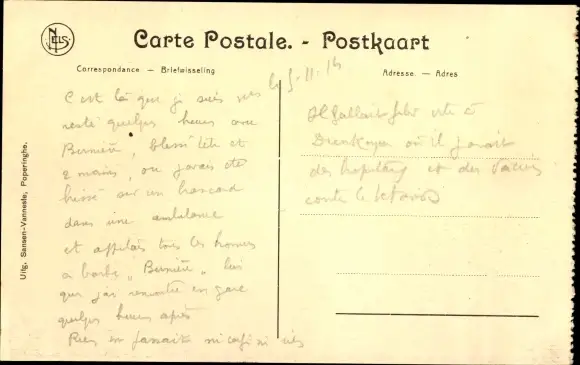 NELS
Carte Postale. - Postkaart
Correspondance — Briefwisseling
Adresse. — Adres
Uitg. Sansen-Vanneste, Poperinghe.
le 5-11-
C'est là que je suis
resté quelques heures avec
Bernière, blessé tête et
2 mains, où j'avais été
hissé sur un brancard
dans une ambulance
et appelais tous les hommes
à barbe "Bernière"
que j'ai rencontré en gare
quelques heures après
Rien en faisait ni café ni
Il fallait
où il y avait
des hopitaux et des
contre le tétanos